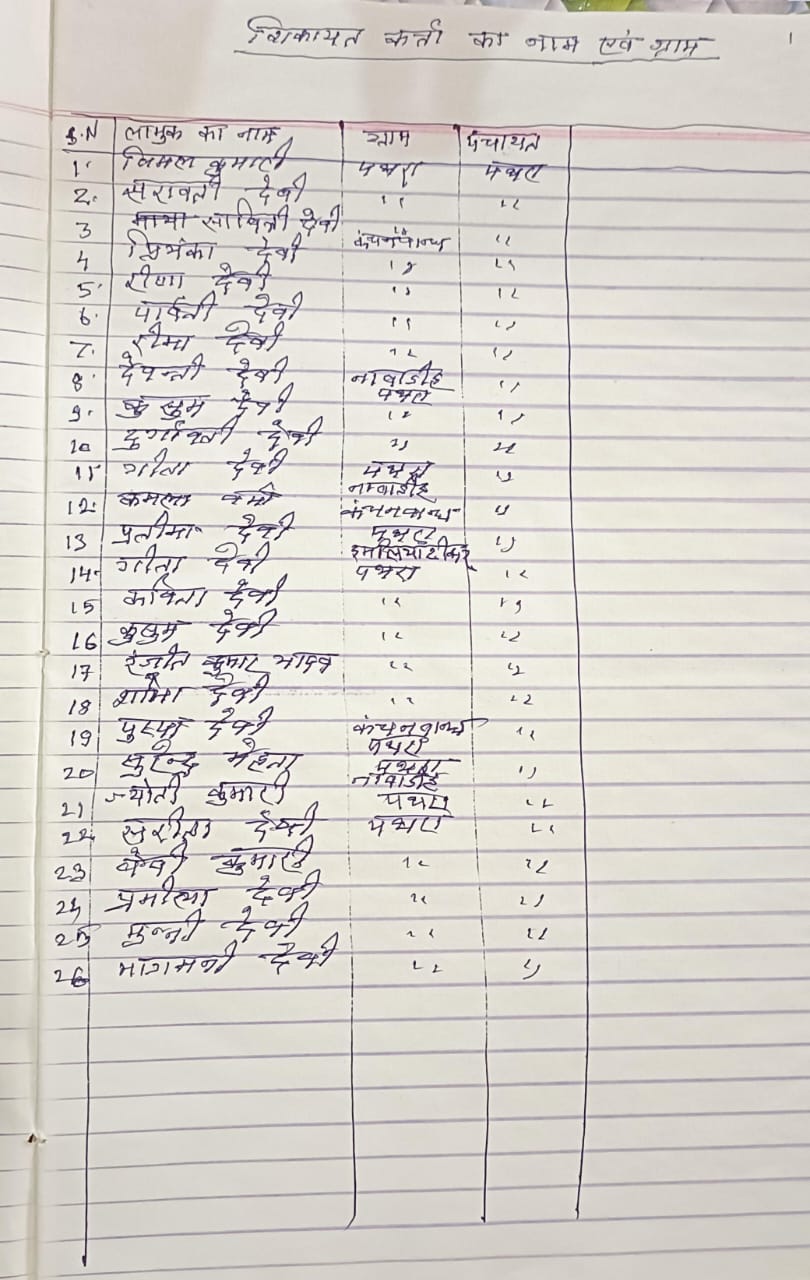 शिकायत कर्ता का नाम एवं ग्राम
1
S.N लाभुक का नाम ग्राम पंचायत
1. विमल कुमारी पथरा पथरा
2. सरावती देवी " "
3 सावित्री देवी कंचनबान्ध "
4 प्रियंका देवी " "
5. रीणा देवी " "
6. पार्वती देवी " "
7. रीमा देवी " "
8. देवन्ती देवी नावाडीह पथरा "
9. कुसुम देवी " "
10 दुर्गावती देवी " "
11 गीता देवी पथरा नावाडीह "
12. कमला देवी कंचनबान्ध "
13 प्रतीमा देवी पथरा "
14. गीता देवी पथरा "
15 कविता देवी " "
16 कुसुम देवी " "
17 रंजीत कुमार यादव " "
18 शोभा देवी " "
19 पुस्पा देवी कंचनबान्ध पथरा "
20 सुरेन्द्र मेहता पथरा "
21 ज्योती कुमारी नावाडीह पथरा "
22 सुशीला देवी पथरा "
23 बेबी कुमारी " "
24 प्रमीला देवी " "
25 मुन्नी देवी " "
26 भागमनी देवी " "